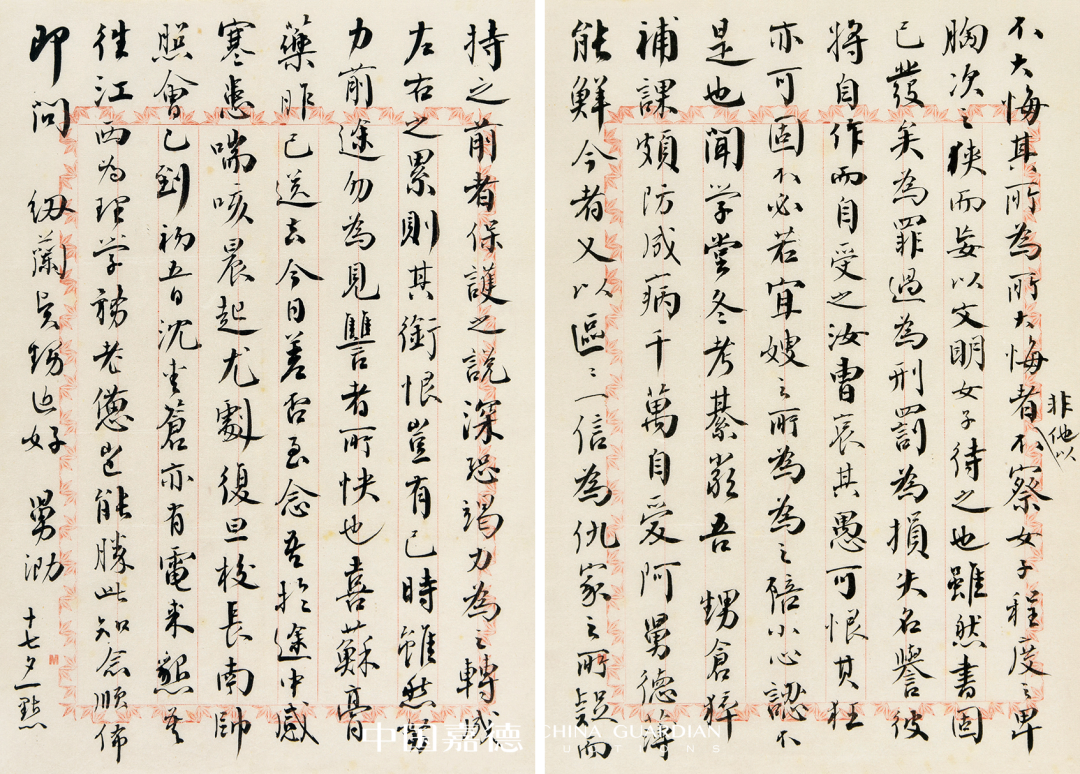 不大悔其所为所大悔者不察女子程度之卑
非他以
胸次之狭而妄以文明女子待之也雖然書固
已發矣為罪過為刑罰為損失名譽彼
將自作而自受之汝曹哀其愚可恨其枉
亦可固不必若宜嫂之所為為之陪小心認不
是也 聞学堂冬考綦嚴吾 甥倉猝
補課頗防成病千萬自爱阿舅德薄
能鮮今者又以區々一信為仇家之所疑而
持之前者保護之説深恐竭力為之轉成
左右之累則其銜恨豈有已時雖然
力前途勿為見讐者所快也喜蘇膏
藥昨已送去今日差否至念吾於途中感
寒患喘咳晨起尤劇復旦校長南帥
照會已到初五日沈
蒼亦有電来懇
往江西為理学務老憊豈能勝此知念順佈
即問 纫蘭吾甥近好 舅泐 十七夕一點
中国嘉德
CHINA GUARDIAN
AUCTIONS